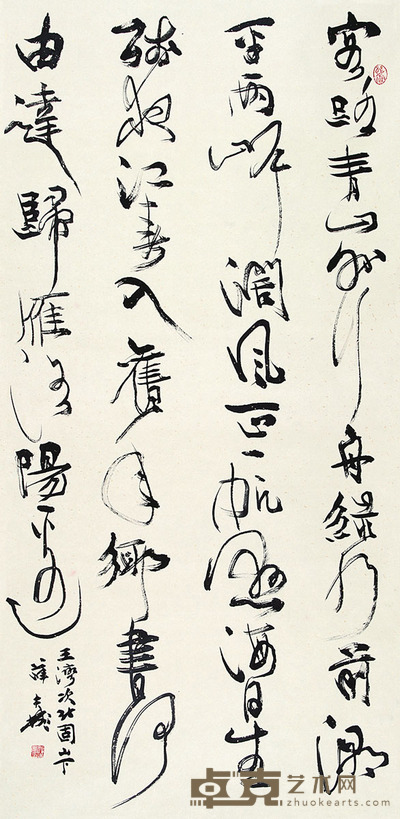 客路青山外行舟綠水前潮
平兩岸濶風正一帆懸海日生
殘夜江春入舊年鄉書何
由達歸雁洛陽邊
王灣次北固山下
薛夫彬
卓克艺术网
zhuokearts.com